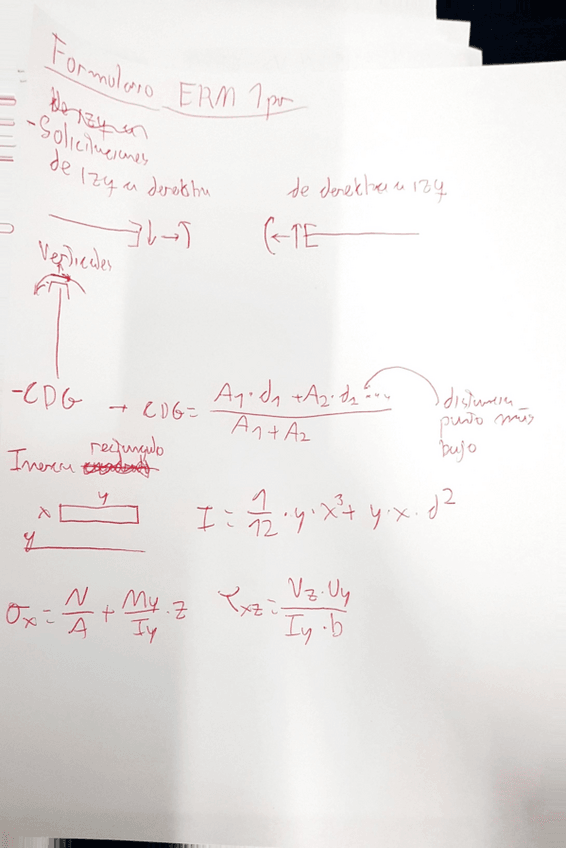 Formulario ERM 1pr
- Solicitaciones
de Izq a derekha
de derekha a izq
Verticales
- CDG → CDG = (A₁·d₁ + A₂·d₂ ...)/(A₁ + A₂)
distancia
punto más
bajo
Inercia rectangulo
y
x
y
I = 1/12 · y · x³ + y · x · d²
σx = N/A + My/Iy · z
τxz = Vz · Uy/(Iy · b)